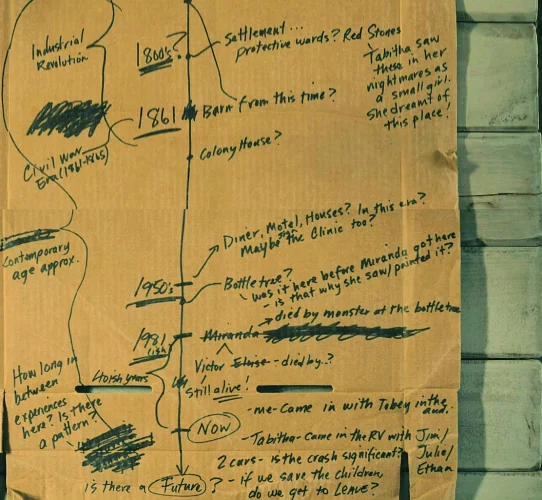 Industrial
Revolution
1800's?
Settlement...
protective wards? Red Stones
Tabitha saw
these in her
nightmares as
a small girl.
She dreamt of
this place!
1861
Barn from this time?
Civil War
Era (1861-1865)
Colony House?
Contemporary
age approx.
Diner, Motel, Houses? In this era?
Maybe the Clinic too?
1950's
Bottle tree?
- was it here before Miranda got here
- is that why she saw/painted it?
died by monster at the bottletree
1981
(ish)
Miranda
Victor Eloise - died by..?
Still alive!
40ish years
How long in
between
experiences
here? Is there
a pattern?
Now
- me - Came in with Tobey in the
- Tabitha - Came in the RV with Jim/
Julie/
Ethan
2 cars - is the crash significant?
is there a Future? - if we save the children,
do we get to leave?